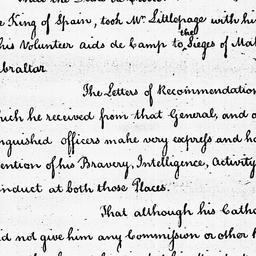 King of Spain, took Mr. Littlepage with his
his Volunteer aids de Camp to the Sieges of Mah
ibraltar
The Letters of Recommendation
which he received from that General, and o
inguished officers make very express and ho
ention of his Bravery, Intelligence, Activity
onduct at both those Places.
That although his Catho
id not give him any Commission or other